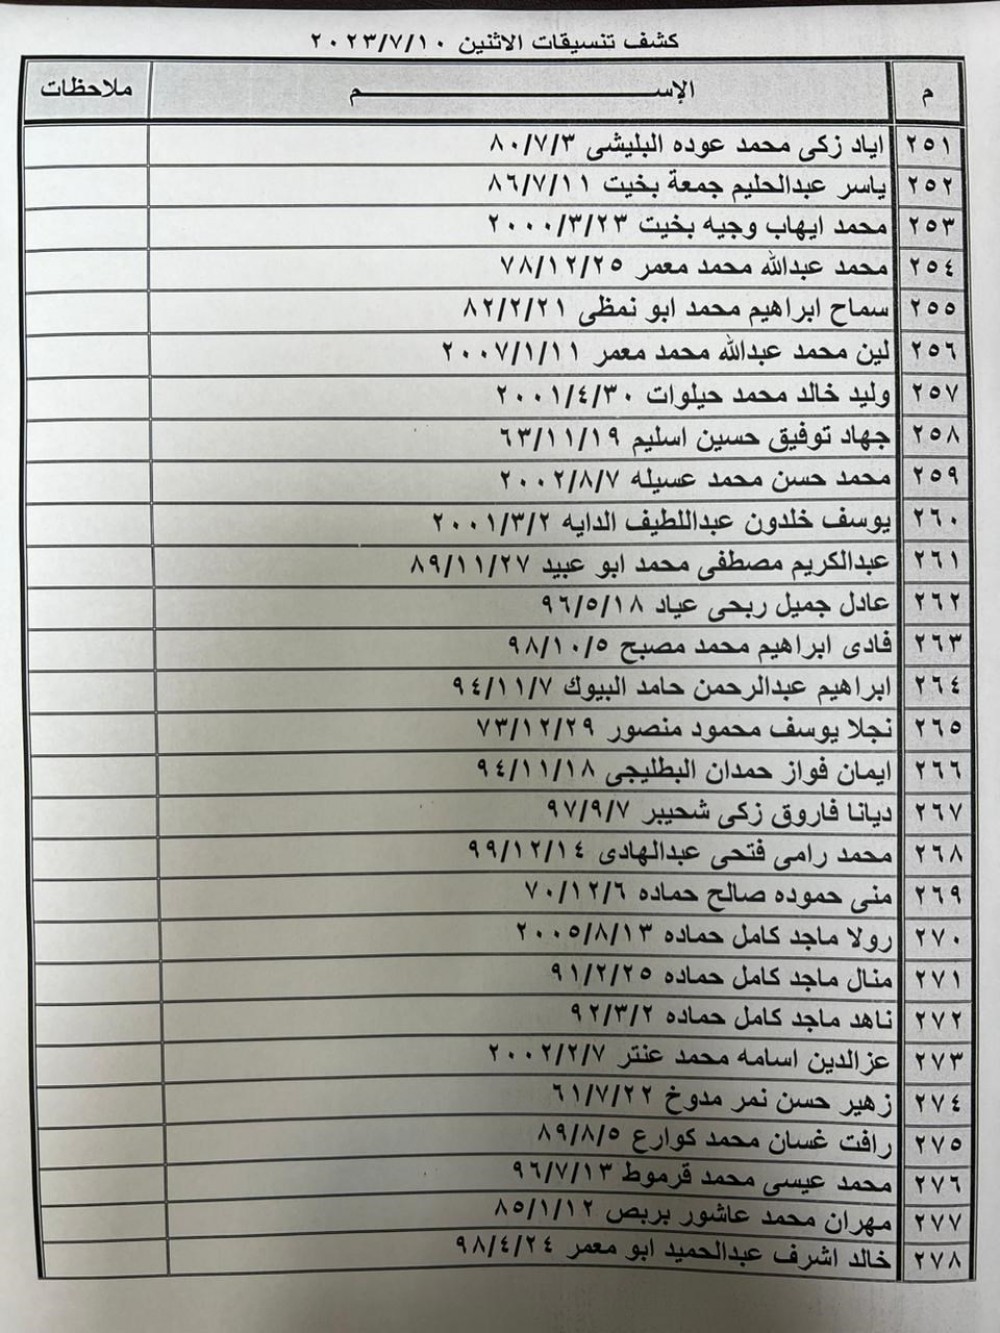 كشف تنسيقات الاثنين ٢٠٢٣/٧/١٠
م الإســـــــــم ملاحظات
٢٥١ اياد زكى محمد عوده البليشى ٨٠/٧/٣
٢٥٢ ياسر عبدالحليم جمعة بخيت ٨٦/٧/١١
٢٥٣ محمد ايهاب وجيه بخيت ٢٠٠٠/٣/٢٣
٢٥٤ محمد عبدالله محمد معمر ٧٨/١٢/٢٥
٢٥٥ سماح ابراهيم محمد ابو نمظى ٨٢/٢/٢١
٢٥٦ لين محمد عبدالله محمد معمر ٢٠٠٧/١/١١
٢٥٧ وليد خالد محمد حيلوات ٢٠٠١/٤/٣٠
٢٥٨ جهاد توفيق حسين اسليم ٦٣/١١/١٩
٢٥٩ محمد حسن محمد عسيله ٢٠٠٢/٨/٧
٢٦٠ يوسف خلدون عبداللطيف الدايه ٢٠٠١/٣/٢
٢٦١ عبدالكريم مصطفى محمد ابو عبيد ٨٩/١١/٢٧
٢٦٢ عادل جميل ربحى عياد ٩٦/٥/١٨
٢٦٣ فادى ابراهيم محمد مصبح ٩٨/١٠/٥
٢٦٤ ابراهيم عبدالرحمن حامد البيوك ٩٤/١١/٧
٢٦٥ نجلا يوسف محمود منصور ٧٣/١٢/٢٩
٢٦٦ ايمان فواز حمدان البطليجى ٩٤/١١/١٨
٢٦٧ ديانا فاروق زكى شحيبر ٩٧/٩/٧
٢٦٨ محمد رامى فتحى عبدالهادى ٩٩/١٢/١٤
٢٦٩ منى حموده صالح حماده ٧٠/١٢/٦
٢٧٠ رولا ماجد كامل حماده ٢٠٠٥/٨/١٣
٢٧١ منال ماجد كامل حماده ٩١/٢/٢٥
٢٧٢ ناهد ماجد كامل حماده ٩٢/٣/٢
٢٧٣ عزالدين اسامه محمد عنتر ٢٠٠٢/٢/٧
٢٧٤ زهير حسن نمر مدوخ ٦١/٧/٢٢
٢٧٥ رافت غسان محمد كوارع ٨٩/٨/٥
٢٧٦ محمد عيسى محمد قرموط ٩٦/٧/١٣
٢٧٧ مهران محمد عاشور بربص ٨٥/١/١٢
٢٧٨ خالد اشرف عبدالحميد ابو معمر ٩٨/٤/٢٤